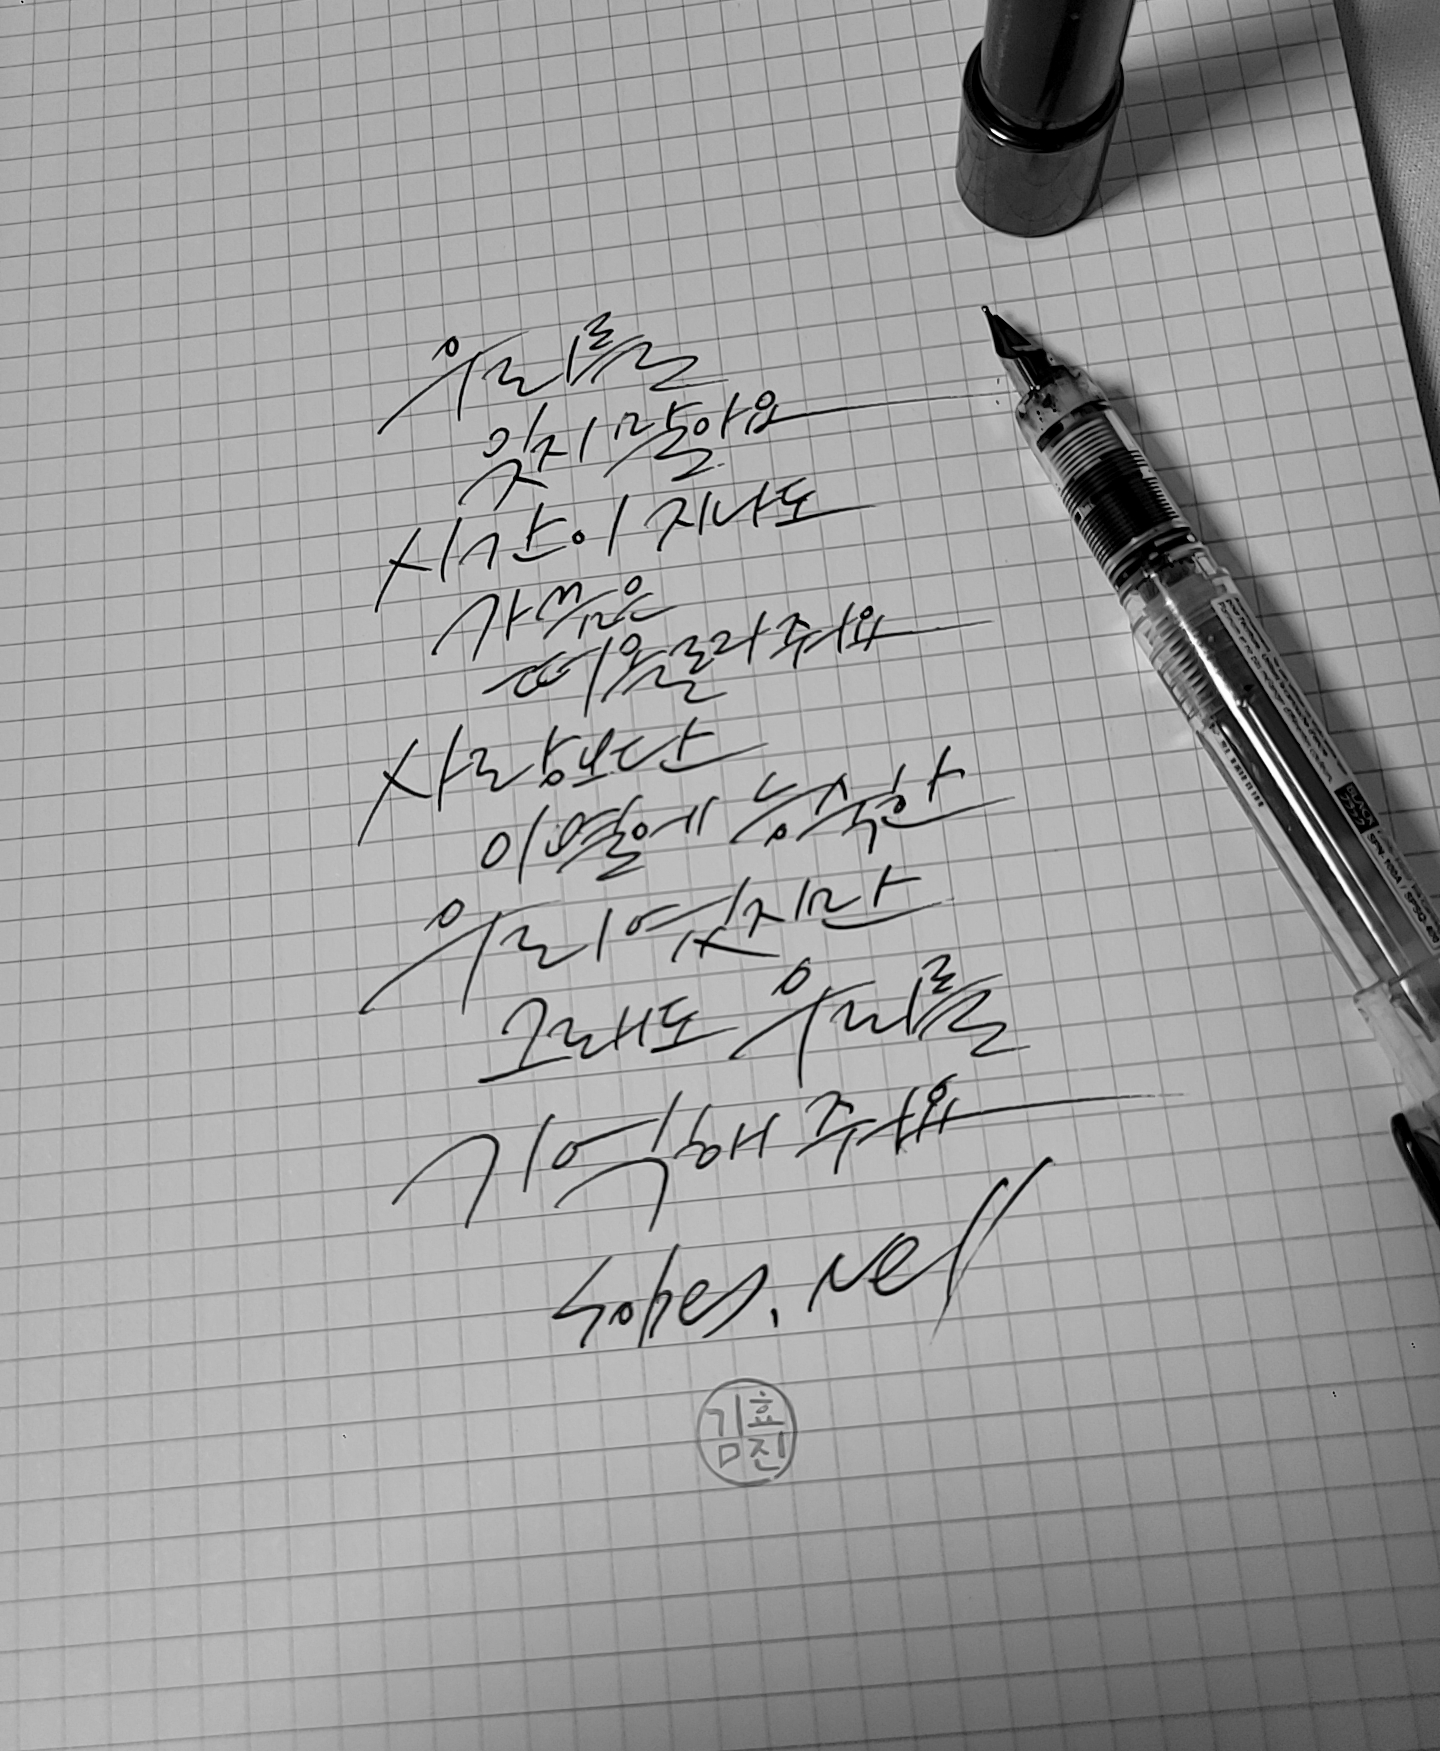 우리를
잊지 말아요
시간이 지나도
가끔은
떠올려 줘요
사랑보단
이별에 능숙한
우리였지만
그래도 우리를
기억해 줘요
Nell
김효진